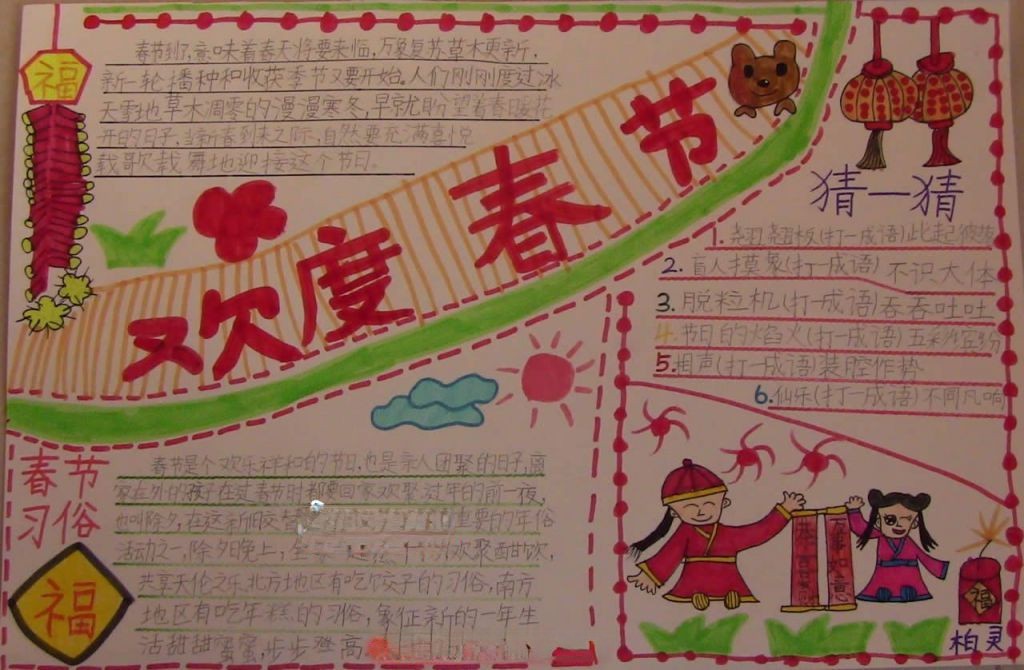 福
春节到了,意味着春天将要来临,万象复苏草木更新,
新一轮播种和收获季节又要开始。人们刚刚度过冰
天雪地草木凋零的漫漫寒冬,早就盼望着春日暖花
开的日子,当新春到来之际,自然要充满喜悦
载歌载舞地迎接这个节日。
欢度春节
猜一猜
1.翘翘板(打一成语)此起彼伏
2.盲人摸象(打一成语)不识大体
3.脱粒机(打一成语)吞吞吐吐
4.节日的焰火(打一成语)五彩缤纷
5.相声(打一成语)装腔作势
6.仙乐(打一成语)不同凡响
春节
习俗
福
春节是个欢乐祥和的节日,也是亲人团聚的日子,离
家在外的孩子在过春节时都要回家欢聚.过年的前一夜,
也叫除夕,在这新旧交替 重要的年俗
活动之一,除夕晚上,全 欢聚酣饮,
共享天伦之乐.北方地区有吃饺子的习俗,南方
地区有吃年糕的习俗,象征新的一年生
活甜甜蜜蜜,步步登高
恭贺
万事如意
福
柏灵